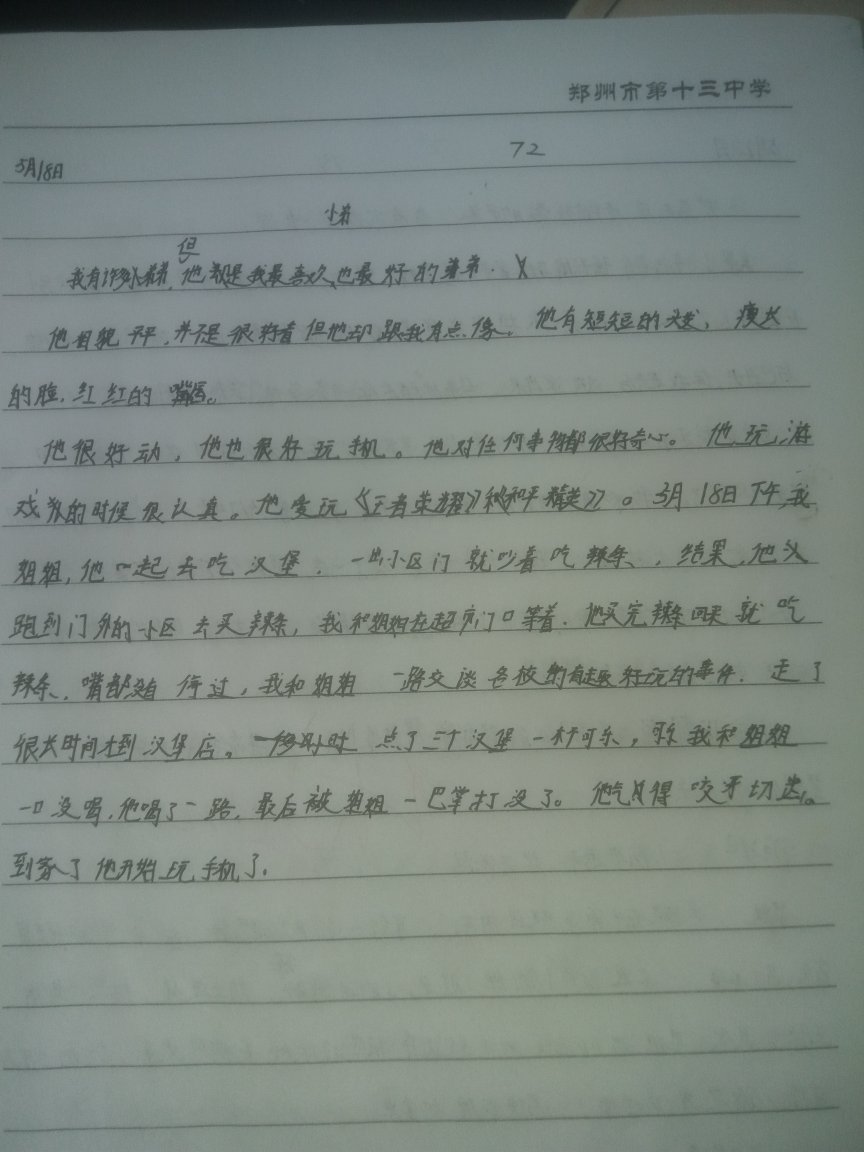 郑州市第十三中学
5月18日 72
小弟
但
我有许多弟弟,他都是我最喜欢也最好的弟弟.
他相貌平平,并不是很好看但他却跟我有点像。他有短短的头发,瘦长
的脸,红红的嘴唇。
他很好动,他也很好玩手机。他对任何事物都很好奇心。他玩游
戏的时候很认真。他爱玩《王者荣耀》和《和平精英》。5月18日下午,我
姐姐,他一起去吃汉堡.一出小区门就吵着吃辣条,结果,他又
跑到门外的小区去买辣条,我和姐姐在超市门口等着.他买完辣条回来就吃
辣条,嘴都没有停过,我和姐姐一路交谈各校的有趣好玩的事件.走了
很长时间才到汉堡店。点了三个汉堡一杯可乐,可乐我和姐姐
一口没喝,他喝了一路,最后被姐姐一巴掌打没了。他气得咬牙切齿。
到家了他开始玩手机了.